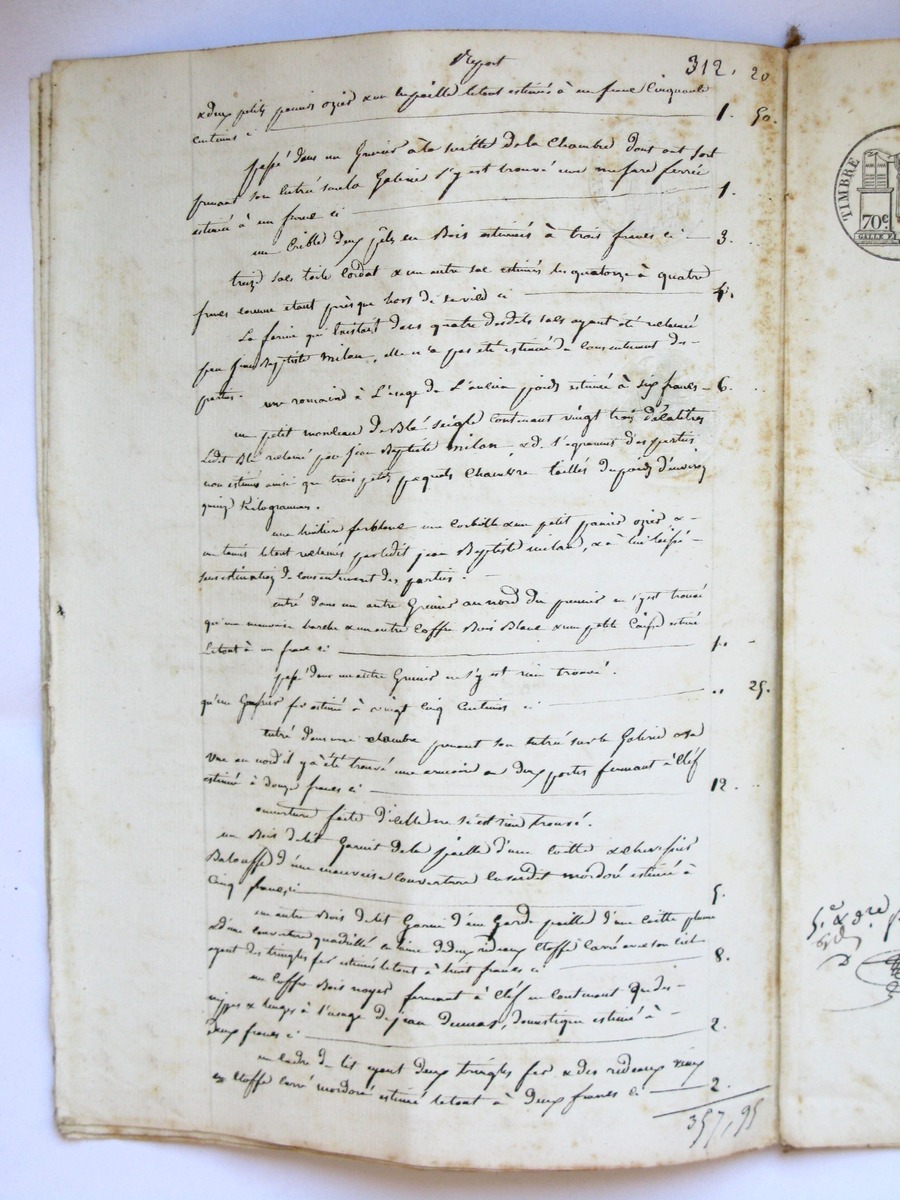 Report 312, 20
& deux petits paniers ozier & un en paille le tout estimés à un franc Cinquante
centimes ci 1. 50.
passé dans un Grenier à la suitte de la Chambre dont on sort
prenant son entrée sur la Galerie s'y est trouvé une ferrée
estimée à un franc ci 1.
un Crible deux en Bois estimées à trois francs ci 3.
treize sacs toile & un autre sac estimés les quatorze à quatre
francs comme etant presque hors de service ci 4.
La farine qui existait dans quatre desdits sacs ayant été reclamée
par jean Baptiste milan, elle n'a pas été estimée du consentement des
parties.
une romaine à L'usage de L'ancien poids estimée à six francs 6.
un petit monceau de Blé Seigle contenant vingt trois décalitres
Ledit Blé reclamé par jean Baptiste milan, & des parties
non estimé ainsi que trois petits paquets Chanvre du poids d'environ
quinze Kilogrammes.
une fer blanc une Corbeille & un petit panier ozier, &
un tamis le tout reclamés par ledit jean Baptiste milan, & à lui laissé
sans estimation du consentement des parties.
entré dans un autre Grenier au nord du premier ne s'y est trouvé
qu'une mauvaise & un autre Coffre Bois Blanc & un petit Coffre estimé
Le tout à un franc ci 1.
passé dans un autre Grenier ne s'y est rien trouvé.
qu'un fer estimé à vingt Cinq Centimes ci 25.
entré dans une chambre prenant son entrée sur la Galerie & sa
Vue au nord il y a été trouvé une armoire à deux portes fermant à Cléf
estimée à douze francs ci 12.
ouverture faite d'icelle ne s'est rien trouvé.
un Bois de lit Garnit de la paille d'une Coitte &
Balouffe d'une mauvaise Couverture mordoré estimé à
Cinq francs ci 5.
un autre Bois de lit Garni d'un Garde paille d'une Coitte plume
& d'une Couverture quadrillé en laine de deux rideaux etoffe Carré avec son Ciel
ayant des tringles fer estimés le tout à huit francs ci 8.
un Coffre Bois noyer fermant à Cléf ne Contenant que des
nippes & linges à l'usage de jean Dumas, domestique estimé à
deux francs ci 2.
un Cadre de lit ayant deux tringles fer & des rideaux vieux
en etoffe Carré mordoré estimé le tout à deux francs ci 2.
357, 95
TIMBRE
70c